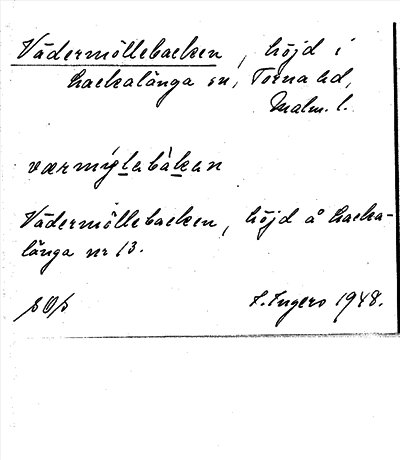 Vädermöllebacken, höjd i
Hackalänga sn, Torna hd,
Malm. l.
værmýlabàkan
Vädermöllebacken, höjd å Hacka-
länga nr 13.
1948.